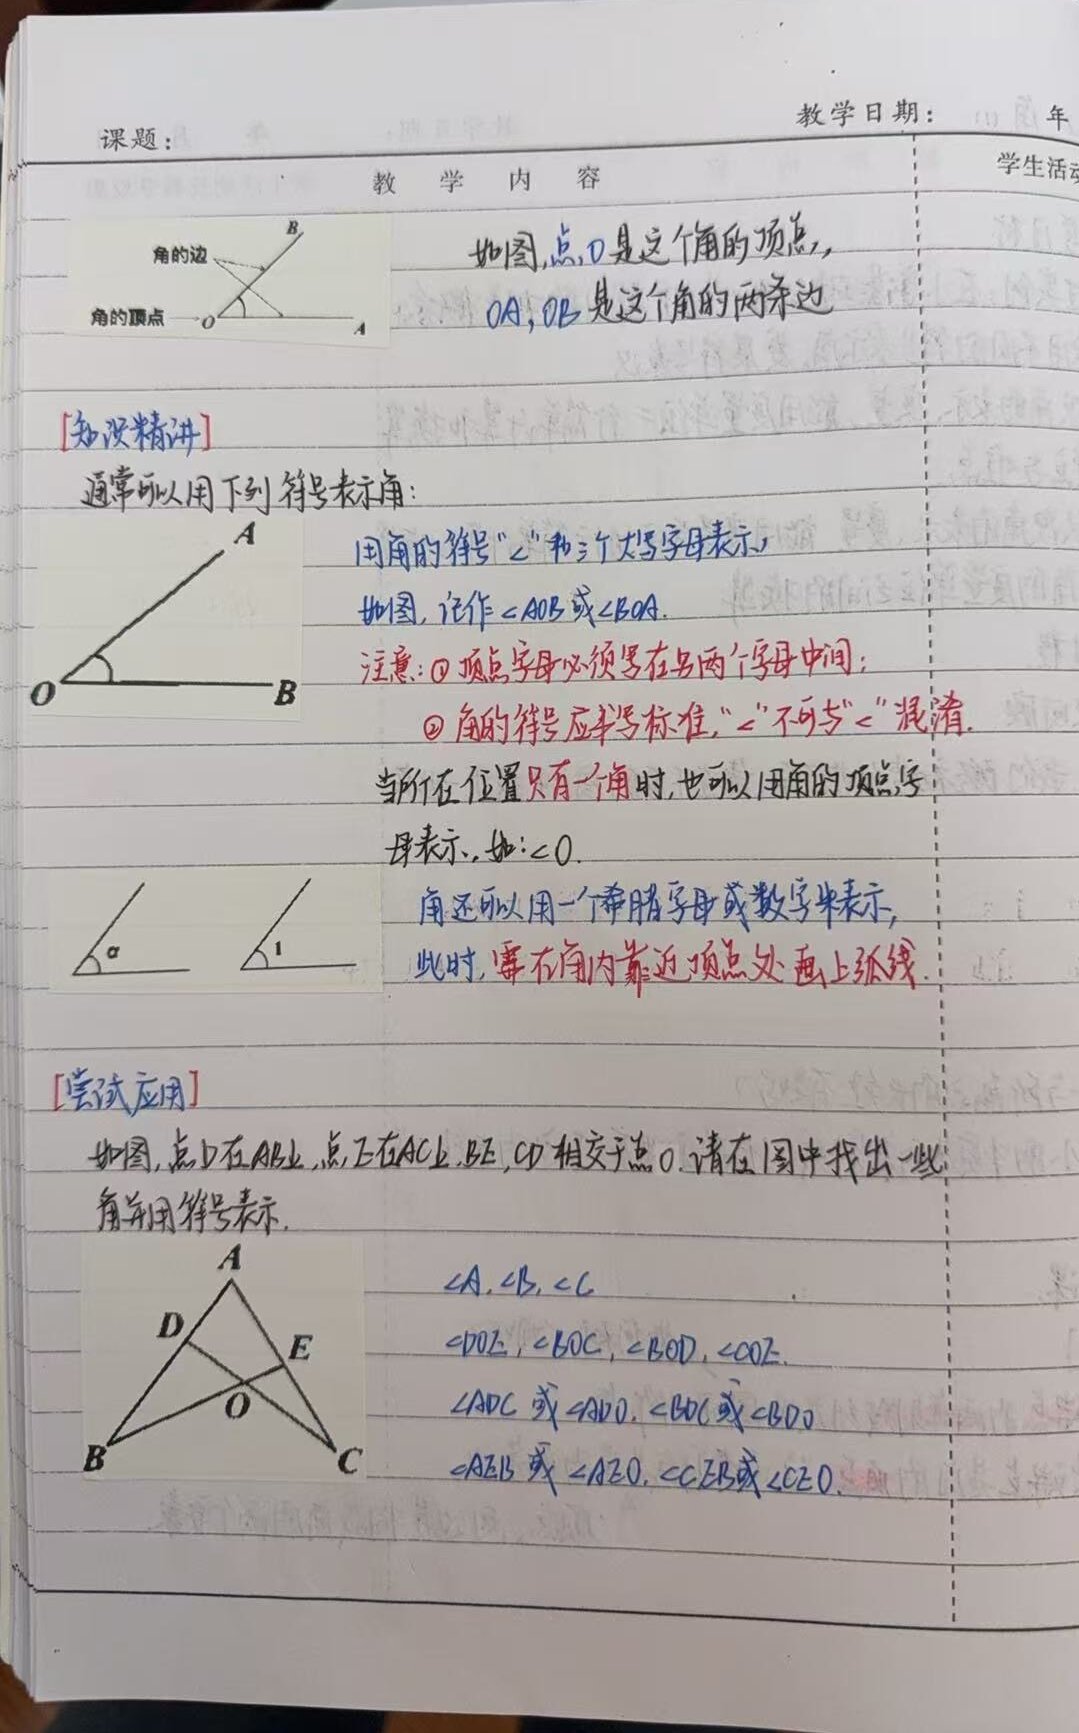 课题：
教学日期： 年
教 学 内 容
学生活动
角的边
角的顶点
B
O
A
如图,点O是这个角的顶点,
OA,OB是这个角的两条边
[知识精讲]
通常可以用下列符号表示角:
A
O
B
用角的符号"∠"和三个大写字母表示,
如图,记作∠AOB或∠BOA.
注意:①顶点字母必须写在另两个字母中间;
②角的符号应书写标准,"∠"不可与"<"混淆.
当所在位置只有一个角时,也可以用角的顶点字
母表示,如:∠O.
α
1
角还可以用一个希腊字母或数字来表示,
此时,要在角内靠近顶点处画上弧线.
[尝试应用]
如图,点D在AB上,点E在AC上,BE,CD相交于点O.请在图中找出一些
角并用符号表示.
A
D
E
O
B
C
∠A,∠B,∠C
∠DOE,∠BOC,∠BOD,∠COE.
∠ADC或∠ADO.∠BDC或∠BDO
∠AEB或∠AEO.∠CEB或∠CEO.